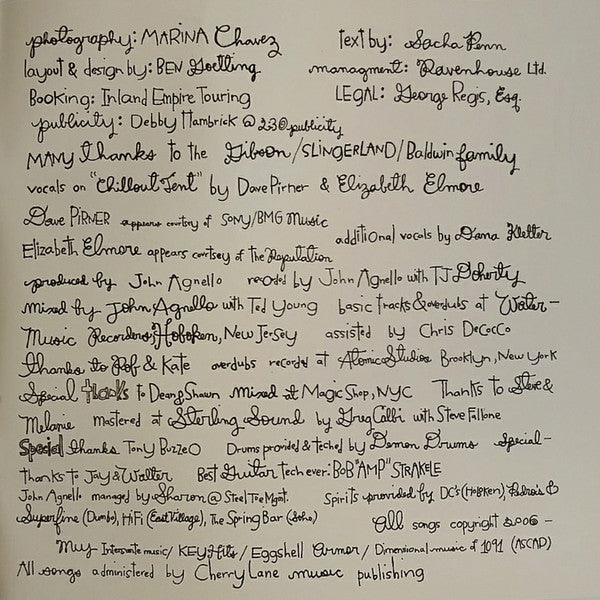 photography: MARINA Chavez text by: Sacha Penn
layout & design by: BEN Goetting managment: Ravenhouse Ltd.
Booking: Inland Empire Touring LEGAL: George Regis, Esq.
publicity: Debby Hambrick @ 230 publicity
MANY thanks to the Gibson/SLINGERLAND/Baldwin family
vocals on "Chillout Tent" by Dave Pirner & Elizabeth Elmore
Dave PIRNER appears courtesy of SONY/BMG Music
Elizabeth Elmore appears courtesy of the Reputation additional vocals by Dana Kletter
produced by John Agnello recorded by John Agnello with TJ Doherty
mixed by John Agnello with Ted Young basic tracks & overdubs at Water-
Music Recorders, Hoboken, New Jersey assisted by Chris DeCocco
thanks to Rob & Kate overdubs recorded at Atomic Studios Brooklyn, New York
Special thanks to Dean & Shawn mixed at Magic Shop, NYC Thanks to Steve &
Melanie mastered at Sterling Sound by Greg Calbi with Steve Fallone
Special thanks Tony Buzzeo Drums provided & teched by Demon Drums special-
thanks to Jay & Walter Best Guitar tech ever: BOB "AMP" STRAKELE
John Agnello managed by Sharon @ Steel Toe Mgmt. Spirits provided by DC's (Hoboken), Pedro's &
Superfine (Dumbo), HiFi (East Village), The Spring Bar (Soho) All songs copyright 2006 -
Muy Interesante music/ KEY Hits/ Eggshell Armor/ Dimensional music of 1091 (ASCAP)
All songs administered by Cherry Lane music publishing